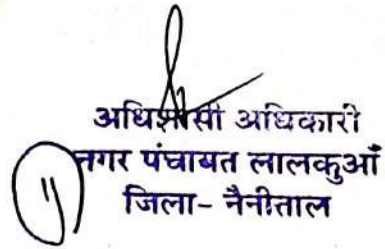 अधिशासी अधिकारी
नगर पंचायत लालकुआँ
जिला- नैनीताल
11